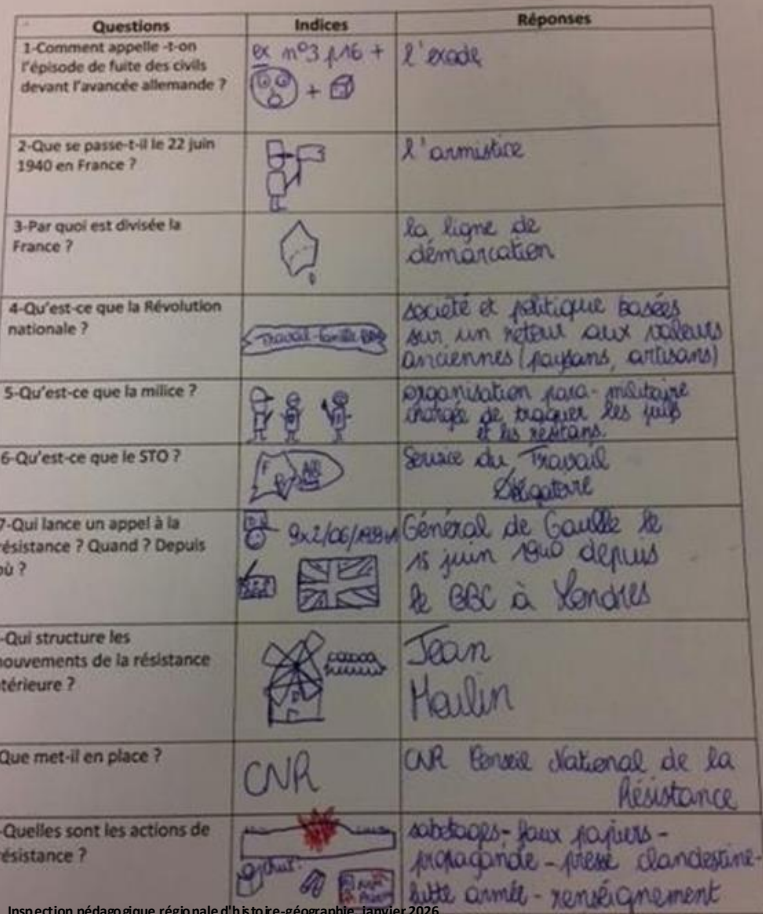 Questions
Indices
Réponses
1-Comment appelle -t-on
l'épisode de fuite des civils
devant l'avancée allemande ?
ex n°3 p16 +
+
l'exode
2-Que se passe-t-il le 22 juin
1940 en France ?
l'armistice
3-Par quoi est divisée la
France ?
la ligne de
démarcation
4-Qu'est-ce que la Révolution
nationale ?
Travail-famille
société et politique basées
sur un retour aux valeurs
anciennes (paysans, artisans)
5-Qu'est-ce que la milice ?
organisation para-militaire
chargée de traquer les juifs
et les
6-Qu'est-ce que le STO ?
F
Service du Travail
Obligatoire
7-Qui lance un appel à la
résistance ? Quand ? Depuis
où ?
9x2/06/
Général de Gaulle le
18 juin 1940 depuis
le BBC à Londres
-Qui structure les
mouvements de la résistance
térieure ?
Jean
Moulin
Que met-il en place ?
CNR
CNR Conseil National de la
Résistance
-Quelles sont les actions de
résistance ?
sabotages- faux papiers -
propagande - presse clandestine-
lutte armée - renseignement
Inspection pédagogique régionale d'histoire-géographie, janvier 2026